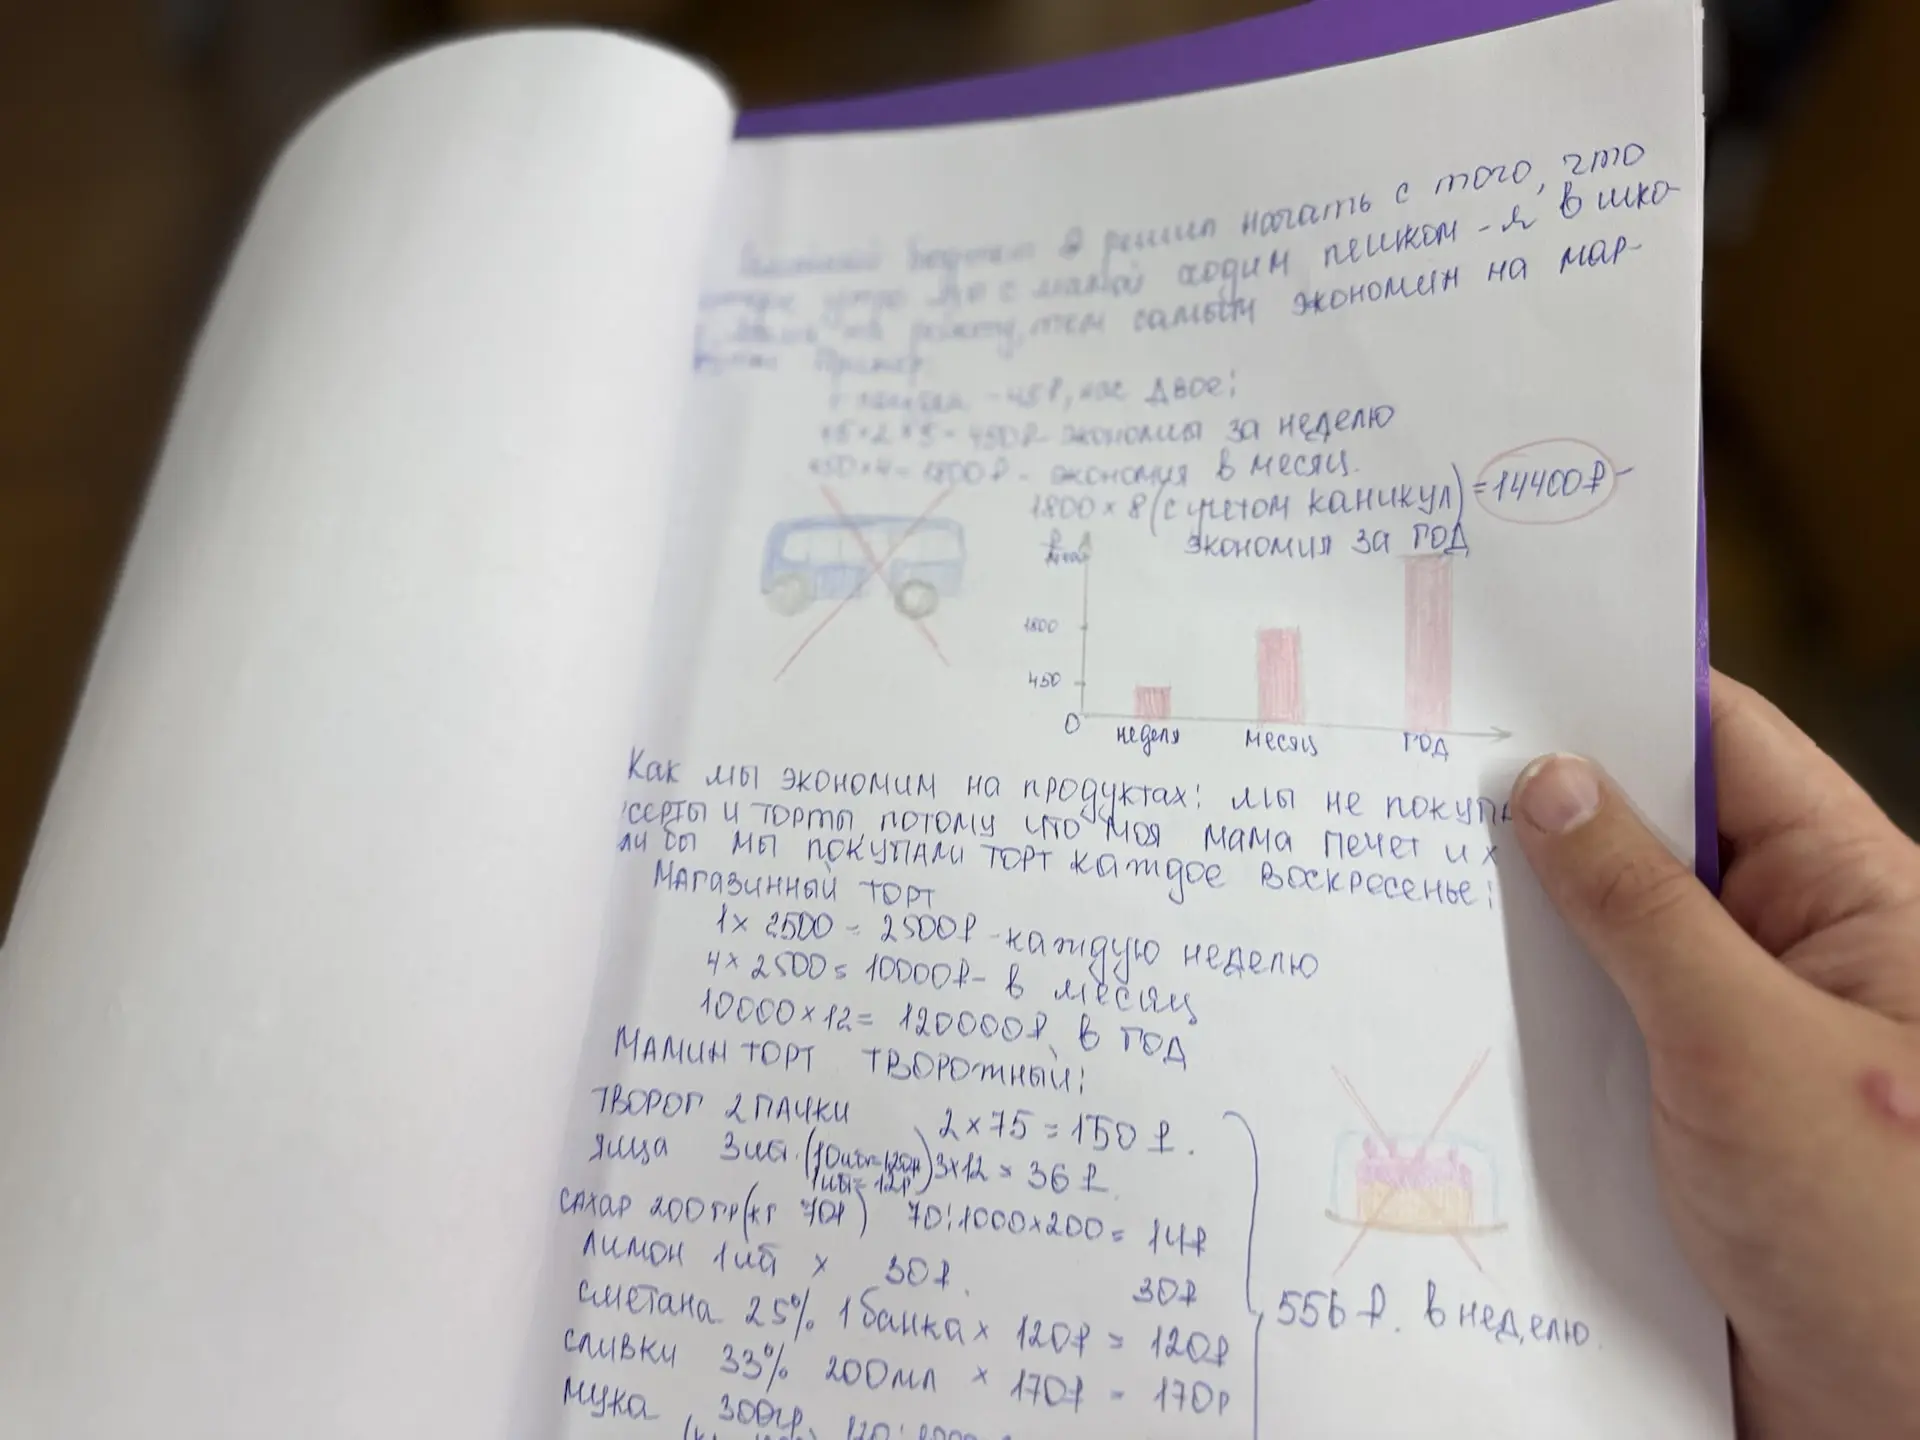 решил начать с того, что
утро мы с мамой ходим пешком - я в шко-
работу, тем самым экономим на мар-
45₽, нас двое:
45×2×5=450₽ экономия за неделю
450×4=1800₽ - экономия в месяц.
1800×8(с учетом каникул)=14400₽-
экономия за год
1800
450
0
неделя месяц год
Как мы экономим на продуктах: мы не покупа
серты и торты, потому что моя мама печет их
ли бы мы покупали торт каждое воскресенье:
Магазинный торт
1×2500=2500₽-каждую неделю
4×2500=10000₽- в месяц
10000×12=120000₽ в год
Мамин торт творожный:
творог 2 пачки 2×75=150₽.
яйца 3шт. (10шт=120₽ 3×12=36₽.
1шт=12₽)
сахар 200гр(кг 70₽) 70:1000×200=14₽
лимон 1шт × 30₽. 30₽
сметана 25% 1банка× 120₽=120₽
556₽. в неделю.
сливки 33% 200мл × 170₽=170₽
мука 300гр.